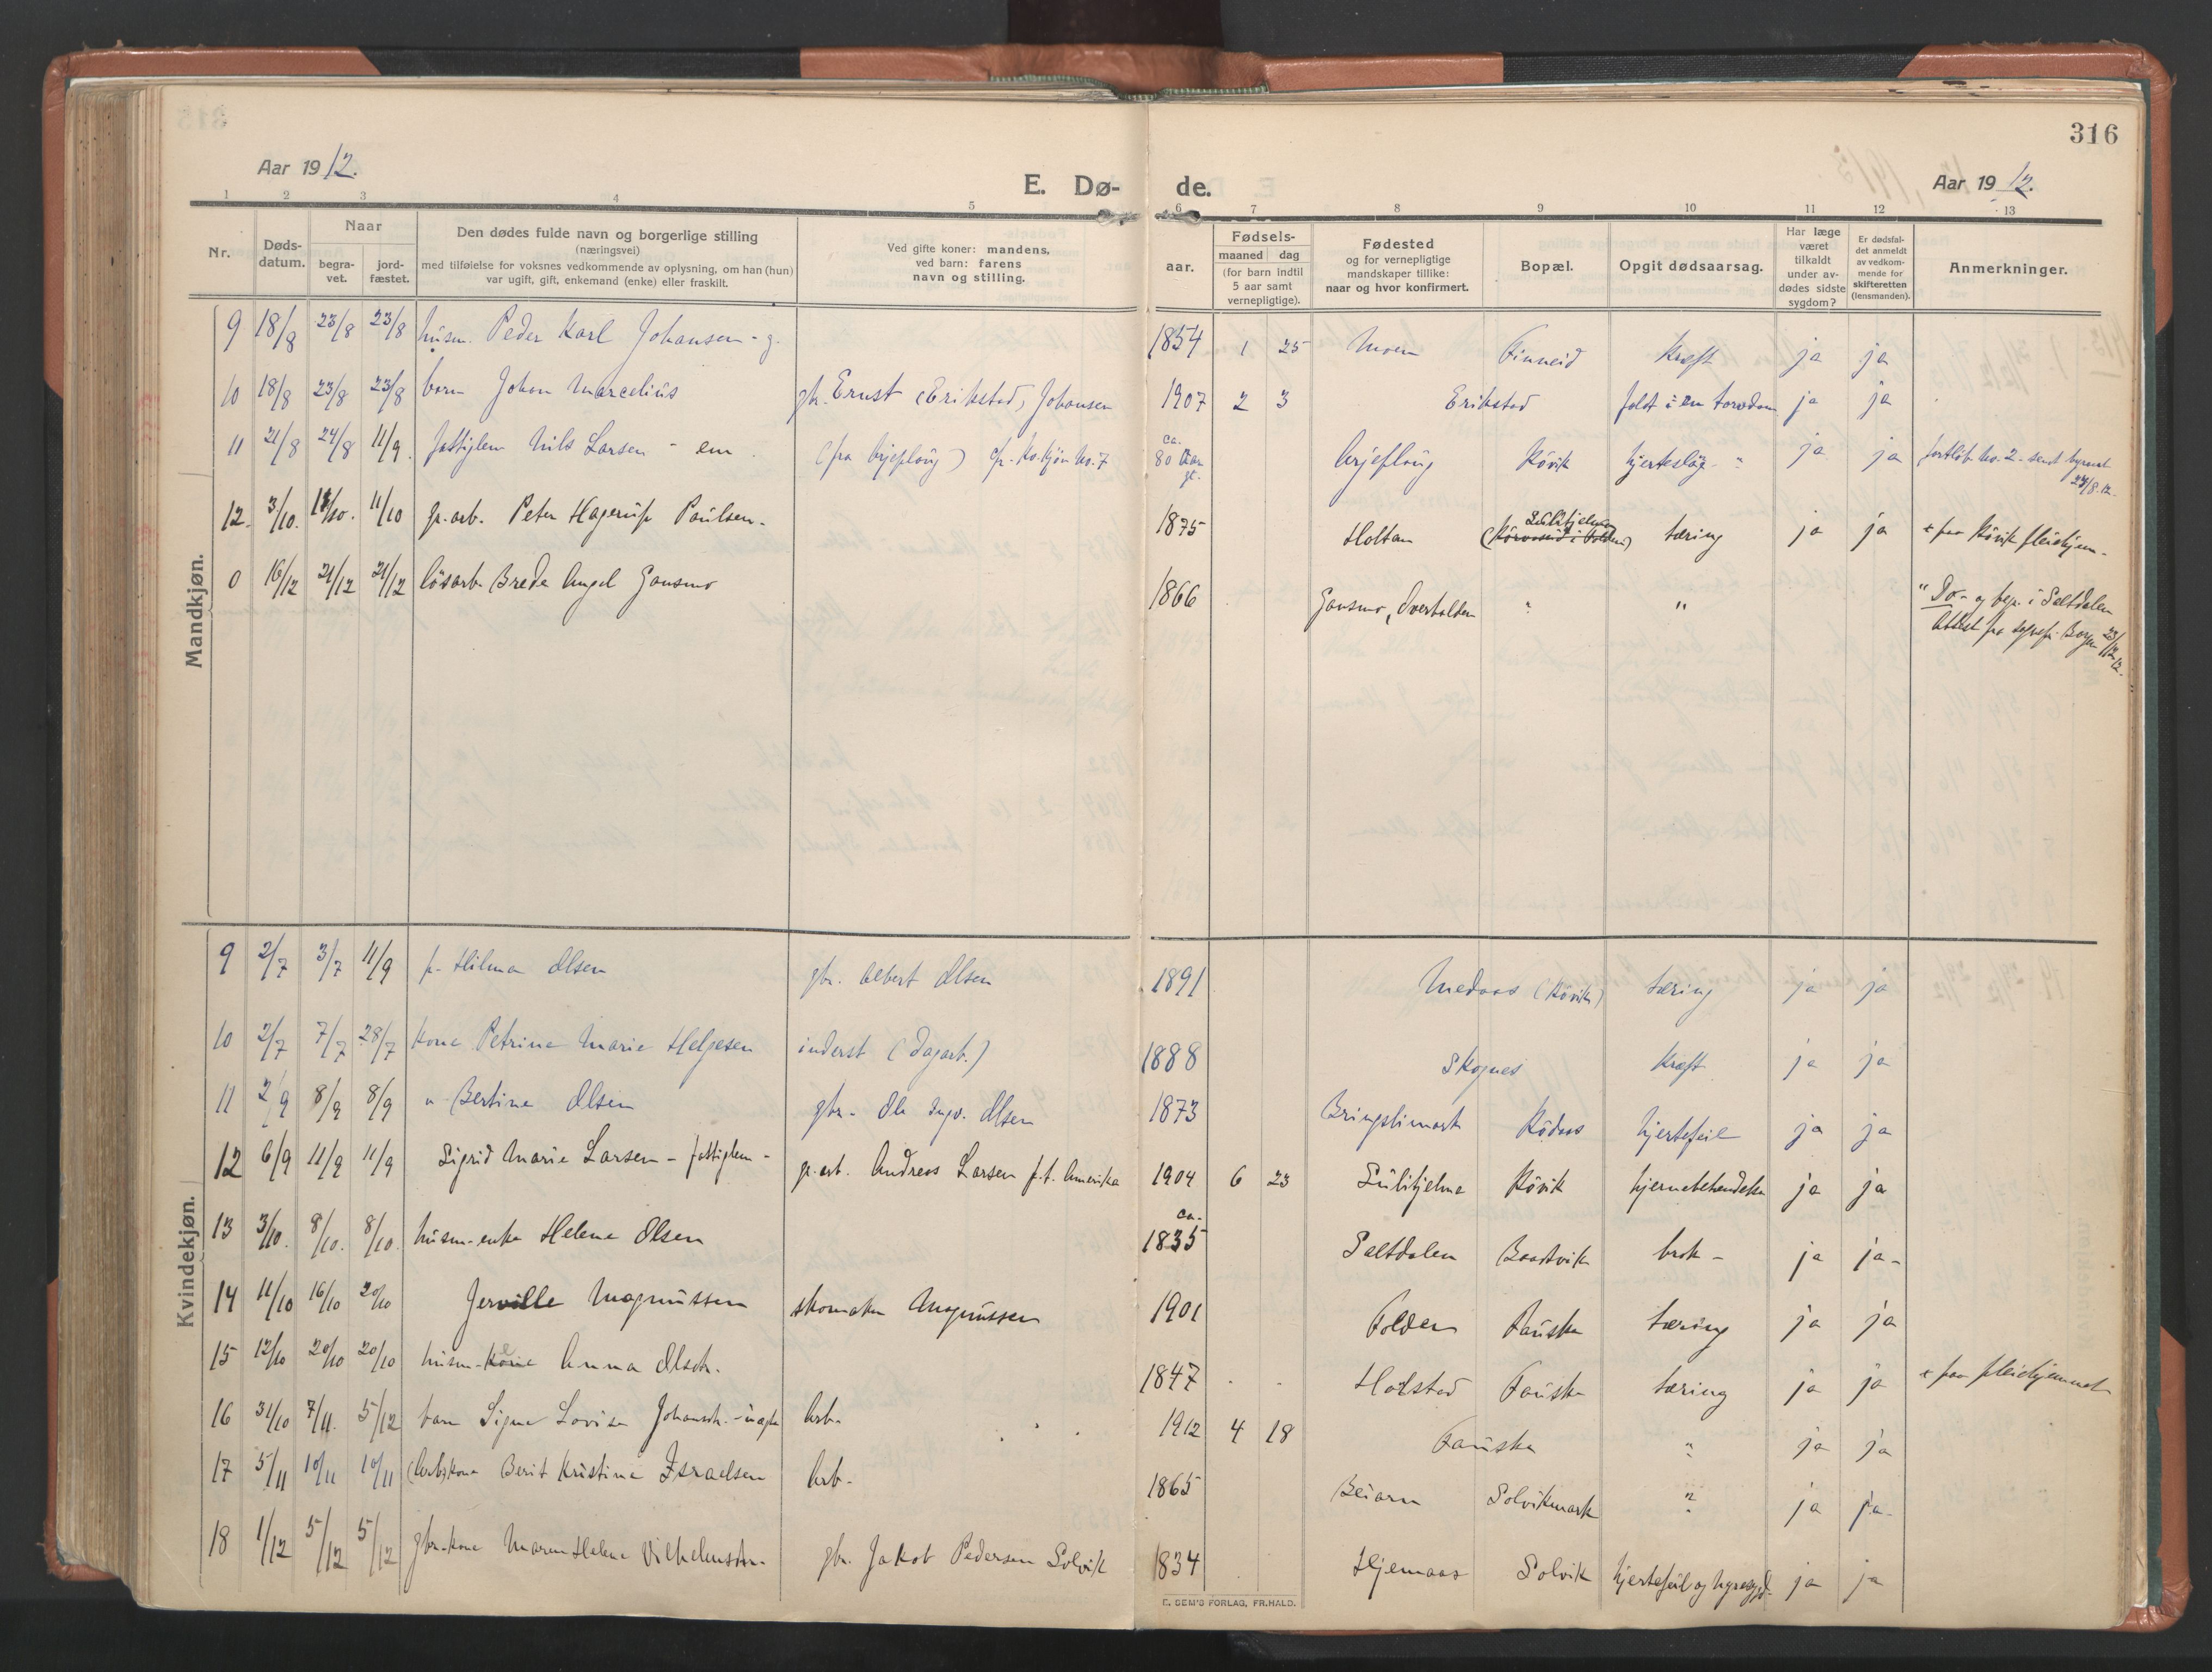 316
Aar 1912.
E. Dø-
de.
Aar 1912.
1 2 3 4 5 6 7 8 9 10 11 12 13
Nr.
Døds-
datum.
Naar
begra-
vet.
jord-
fæstet.
Den dødes fulde navn og borgerlige stilling
(næringsvei)
med tilføielse for voksnes vedkommende av oplysning, om han (hun)
var ugift, gift, enkemand (enke) eller fraskilt.
Ved gifte koner: mandens,
ved barn: farens
navn og stilling.
aar.
Fødsels-
maaned dag
(for barn indtil
5 aar samt
vernepligtige).
Fødested
og for vernepligtige
mandskaper tillike:
naar og hvor konfirmert.
Bopæl.
Opgit dødsaarsag.
Har læge
været
tilkaldt
under av-
dødes sidste
sygdom?
Er dødsfal-
det anmeldt
av vedkom-
mende for
skifteretten
(lensmanden).
Anmerkninger.
Mandkjøn.
9 18/8 23/8 23/8 husm. Peder Karl Johansen - g. 1854 1 25 Moen Finneid Kræft ja ja
10 18/8 23/8 23/8 barn Johan Marcelius gbr. Ernst (Erikstad) Johansen 1907 2 3 Erikstad faldt i en torvdam ja ja
11 21/8 24/8 11/9 fattiglem Nils Larsen - em (fra Arjeploug) cfr. kv.kjøn No. 7 ca. 80 Aar gl. Arjeploug Røvik hjerteslag ja ja fortløb No. 2 - sendt 27/8.12.
12. 3/10. 11/10. 11/10 gr.arb. Peter Hagerup Paulsen. 1875 Holtan Sulitjelma tæring ja ja + paa Røvik pleiehjem.
0 16/12 21/12 21/12 løsarb. Brede Angel Gansmo 1866 Gansmo, Overhalden " " Do. og begr. i Saltdalen
Attest fra sognepr. 23/12.12.
Kvindekjøn.
9 2/7 3/7 11/9 p. Hilma Olsen gbr. Albert Olsen 1891 Medaas (Røvik) tæring ja ja
10 2/7 7/7 28/7 kone Petrine Marie Helgesen inderst (dagarb.) 1888 Skognes Kræft ja ja
11 2/9 8/9 8/9 " Bertine Olsen gbr. Ole Ingv. Olsen 1873 Bringslimark Rødaas hjertefeil ja ja
12 6/9 11/9 11/9 Sigrid Marie Larsen - fattiglem - gr.arb. Andreas Larsen p.t. Amerika 1904 6 23 Sulitjelma Røvik ja ja
13 3/10. 8/10. 8/10. husm.-enke Helene Olsen ca. 1835 Saltdalen Baadtvik brok - ja ja -
14 11/10 16/10 20/10 Jerville Magnussen skomaker Magnussen 1901 Folden Fauske tæring ja ja
15 12/10 20/10 20/10 husm.-kone Anna Olsen. 1847 Holstad Fauske tæring ja ja + paa pleiehjemmet
16 31/10 7/11. 5/12 barn Signe Lovise Johansen - uægte Arb. 1912 4 18 Fauske " ja ja
17 5/11 10/11 10/11 (Arb)kone Berit Kristine Israelsen Arb. 1865 Beiarn Solvikmark ? ja ja -
18 1/12 5/12 5/12 gbr.-kone Maren Helene Vilhelmsen. gbr. Jakob Pedersen Solvik 1834 Hjemaas Solvik hjertefeil og nyresygd. ja ja
E. SEM'S FORLAG, FR.HALD.